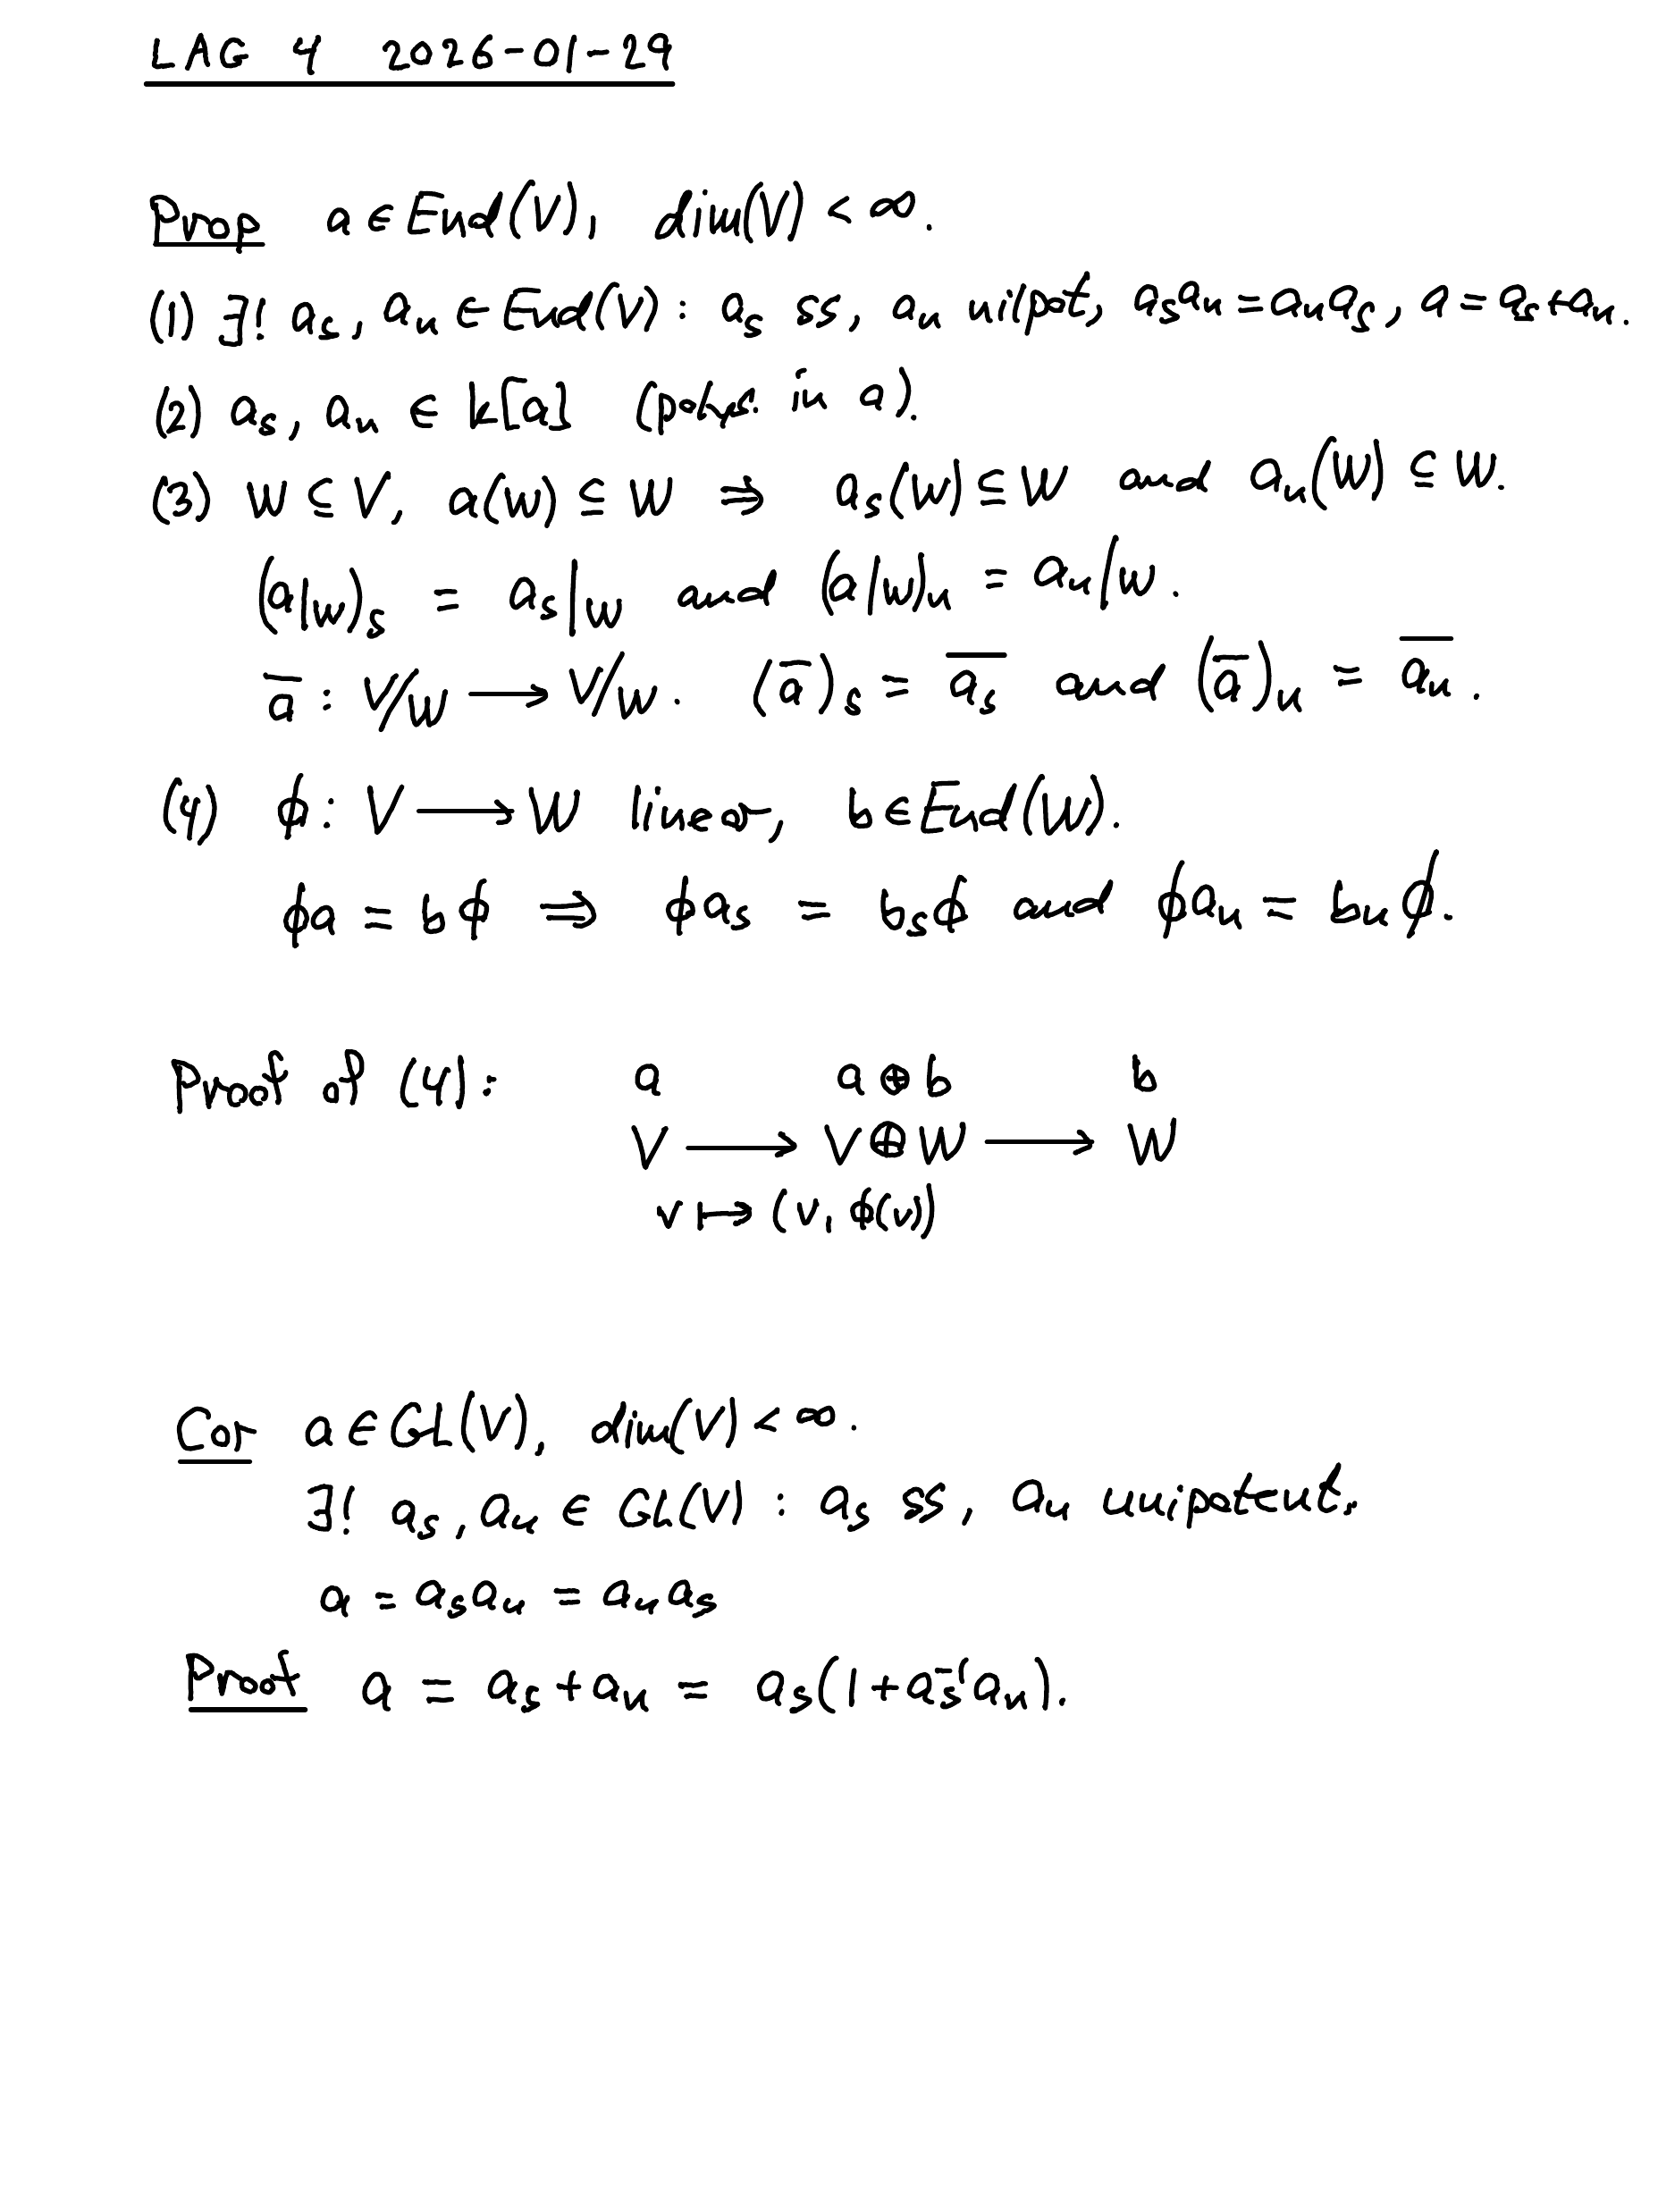 LAG 4 2026-01-29
Prop a ∈ End(V), dim(V) < ∞.
(1) ∃! a_s, a_n ∈ End(V) : a_s ss, a_n nilpot, a_s a_n = a_n a_s, a = a_s + a_n.
(2) a_s, a_n ∈ k[a] (polys. in a).
(3) W ⊆ V, a(W) ⊆ W ⇒ a_s(W) ⊆ W and a_n(W) ⊆ W.
(a|_W)_s = a_s|_W and (a|_W)_n = a_n|_W.
ā : V/W ⟶ V/W. (ā)_s = \overline{a_s} and (ā)_n = \overline{a_n}.
(4) ϕ : V ⟶ W linear, b ∈ End(W).
ϕa = bϕ ⇒ ϕa_s = b_sϕ and ϕa_n = b_nϕ.
Proof of (4): a a ⊕ b b
V ⟶ V ⊕ W ⟶ W
v ↦ (v, ϕ(v))
Cor a ∈ GL(V), dim(V) < ∞.
∃! a_s, a_u ∈ GL(V) : a_s ss, a_u unipotent,
a = a_s a_u = a_u a_s
Proof a = a_s + a_n = a_s(1 + a_s^{-1} a_n).